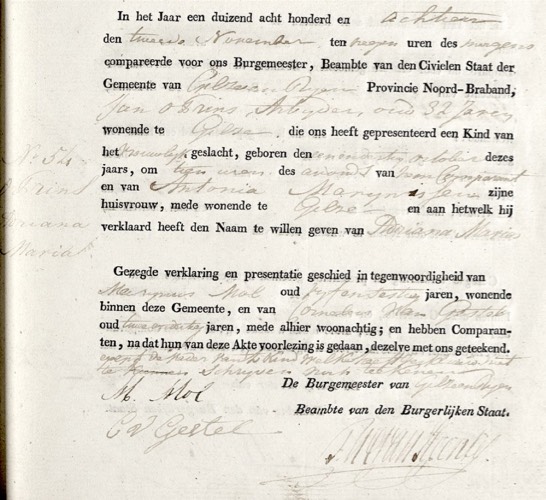 In het Jaar een duizend acht honderd en achtien
den tweede November ten negen uren des morgens
compareerde voor ons Burgemeester, Beambte van den Civielen Staat der
Gemeente van Gilze en Ryen Provincie Noord-Braband,
Jan Arbyder, oud 32 Jaren
wonende te Gilze die ons heeft gepresenteerd een Kind van
het vrouwelyk geslacht, geboren den october dezes
jaars, om tien uren des avonds van den Comparant
en van Antonia zijne
huisvrouw, mede wonende te Gilze en aan hetwelk hij
verklaard heeft den Naam te willen geven van Maria
N.º 54
Maria
Gezegde verklaring en presentatie geschied in tegenwoordigheid van
Marynus Mol oud jaren, wonende
binnen deze Gemeente, en van Cornelius Van Gestel
oud jaren, mede alhier woonachtig; en hebben Comparan-
ten, na dat hun van deze Akte voorlezing is gedaan, dezelve met ons geteekend.
schryven
De Burgemeester van Gilze en Ryen
M. Mol
Beambte van den Burgerlijken Staat.
C V Gestel